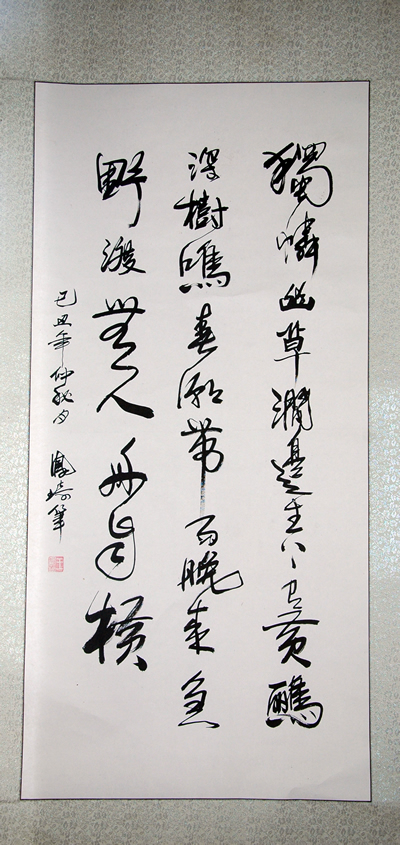 獨憐幽草澗邊生上有黃鸝
深樹鳴春潮帶雨晚來急
野渡無人舟自橫
己丑年仲秋月 鳳琦筆